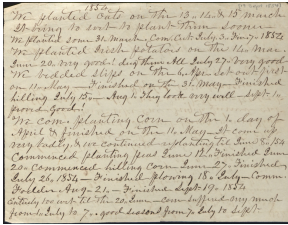 1854
We planted Oats on the 13 – 14 & 15 march
it being to wet to plant them sooner
We planted corn 31 march Com. Cut July 3 – Fin. 7 – 1854
We planted Irish potatoes on the 16 mar
June 20 – very good & dug them all July 27 – very good
We bedded slips on the 6 Apr set out first
on 11 May – Finished on the 31 May – Finished
hilling July 15 – Aug 1 They look very well – Sept. 1
proved Good!
We com. planting Corn on the 1. day of
April & finished on the 11 May – It come up
very badly & we continued replanting till June 8 – 154
Commenced planting peas June 1st Finished June
20 – Commenced hilling Corn June 27 – Finished
July 26, 1854 – Finished plowing 18 – July – Comm.
Fodder Aug – 21 – Finished Sept 19 – 1854
entirely too wet till the 20 June – corn suffered very much
from July to 7 – good seasons from 7 July to Sept